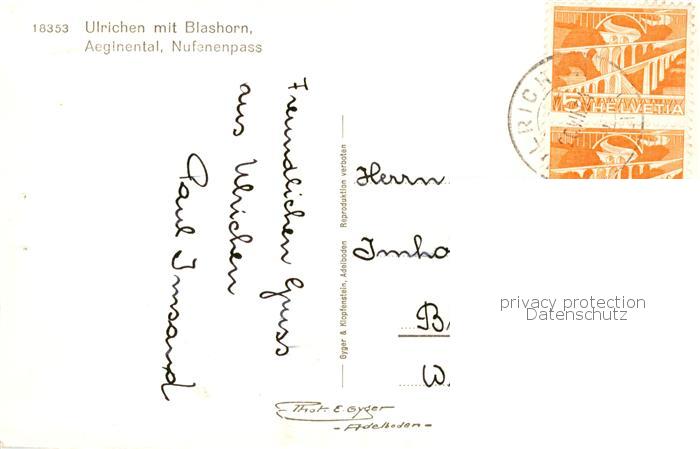 18353 Ulrichen mit Blashorn,
Aeginental, Nufenenpass
Freundlichen Gruss
aus Ulrichen
Paul Imsand
Gyger & Klopfenstein, Adelboden Reproduktion verboten
Herrn
Imho
B
W.
Phot. E. Gyger
- Adelboden -
5 HELVETIA
ULRICH
privacy protection
Datenschutz